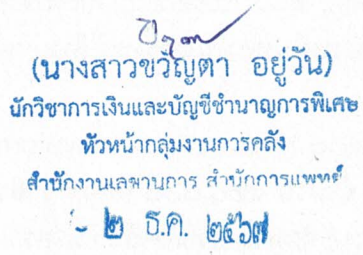 (นางสาวขวัญตา อยู่วัน)
นักวิชาการเงินและบัญชีชำนาญการพิเศษ
หัวหน้ากลุ่มงานการคลัง
สำนักงานเลขานุการ สำนักการแพทย์
- ๒ ธ.ค. ๒๕๖๗